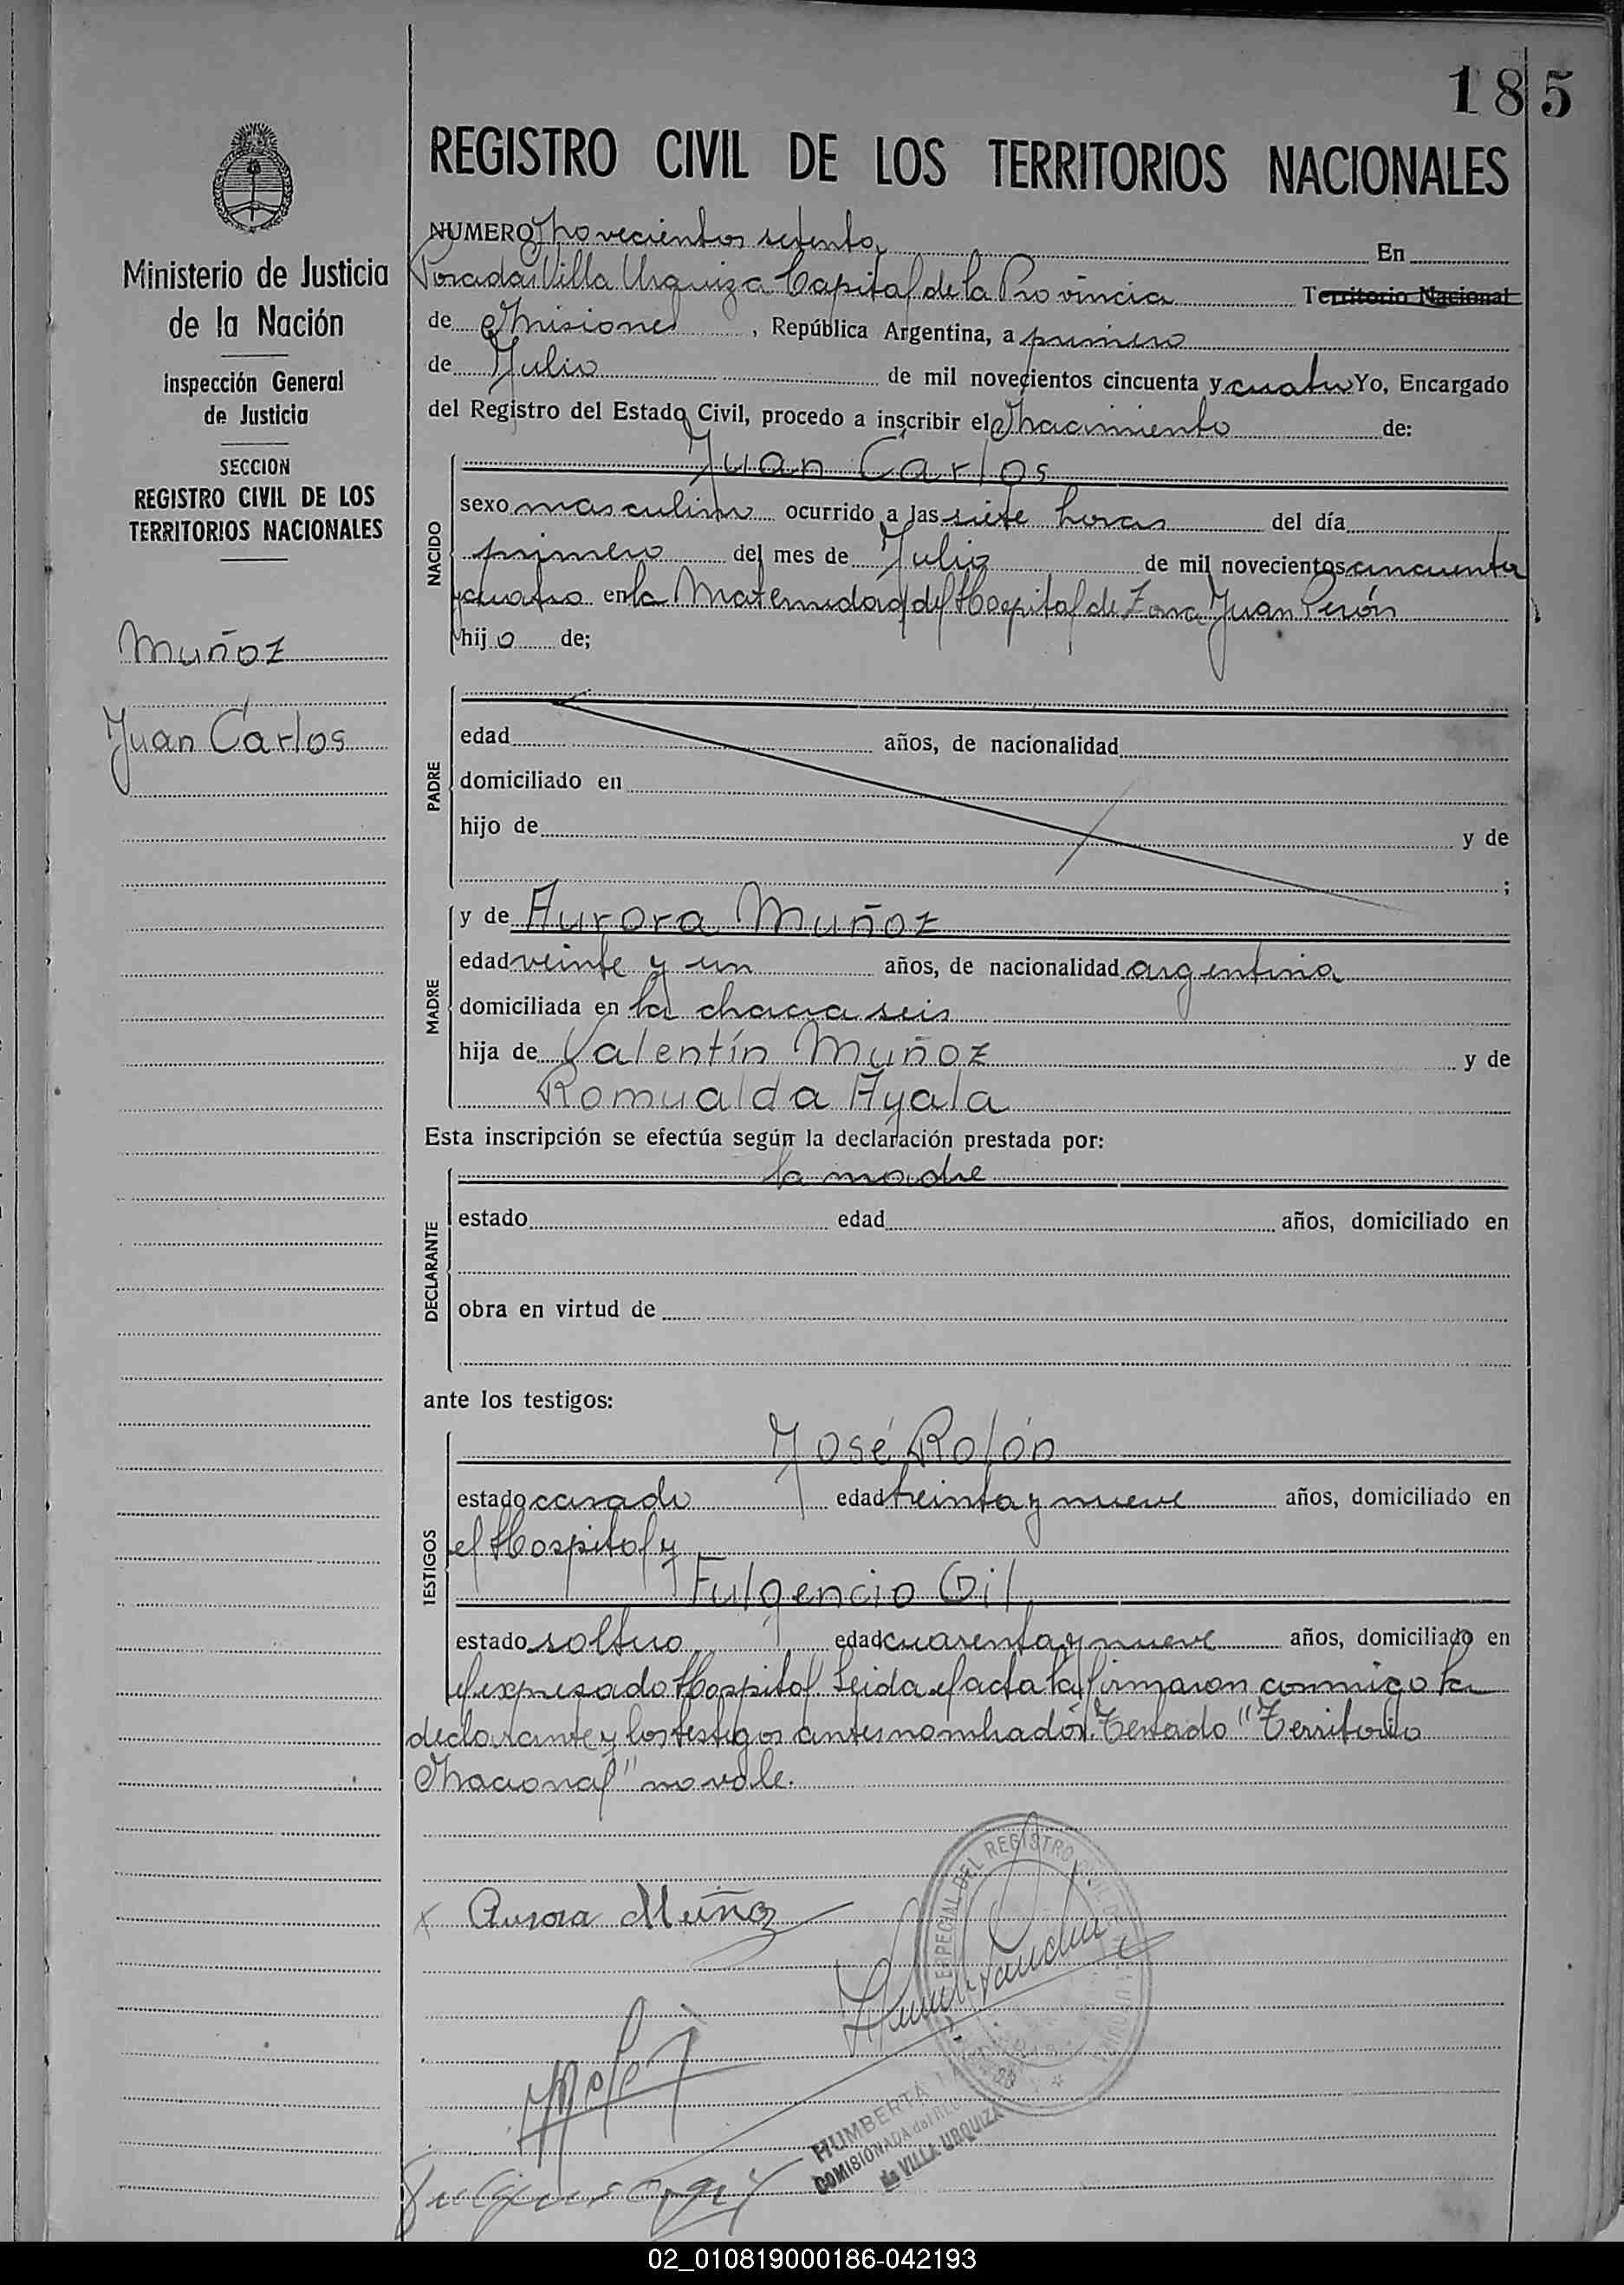 185
REGISTRO CIVIL DE LOS TERRITORIOS NACIONALES
Ministerio de Justicia
de la Nación
Inspección General
de Justicia
SECCION
REGISTRO CIVIL DE LOS
TERRITORIOS NACIONALES
Muñoz
Juan Carlos
NUMERO Novecientos setenta En
Posadas Villa Urquiza Capital de la Provincia Territorio Nacional
de Misiones, República Argentina, a primero
de Julio de mil novecientos cincuenta y cuatro Yo, Encargado
del Registro del Estado Civil, procedo a inscribir el Nacimiento de:
NACIDO
Juan Carlos
sexo masculino ocurrido a las siete horas del día
primero del mes de Julio de mil novecientos cincuenta
y cuatro en la Maternidad del Hospital de Zona Juan Perón
hijo de;
PADRE
edad años, de nacionalidad
domiciliado en
hijo de y de
;
MADRE
y de Aurora Muñoz
edad veinte y un años, de nacionalidad argentina
domiciliada en la chacra seis
hija de Valentín Muñoz y de
Romualda Ayala
Esta inscripción se efectúa según la declaración prestada por:
DECLARANTE
la madre
estado edad años, domiciliado en
obra en virtud de
ante los testigos:
TESTIGOS
José Rolón
estado casado edad treinta y nueve años, domiciliado en
el Hospital y
Fulgencio Gil
estado soltero edad cuarenta y nueve años, domiciliado en
el expresado Hospital. Leida el acta la firmaron conmigo la
declarante y los testigos antes nombrados. Testado "Territorio
Nacional" no vale.
Aurora Muñoz
ESPECIAL DEL REGISTRO
HUMBERTA
COMISIONADA del
de VILLA URQUIZA
Fulgencio Gil
02_010819000186-042193